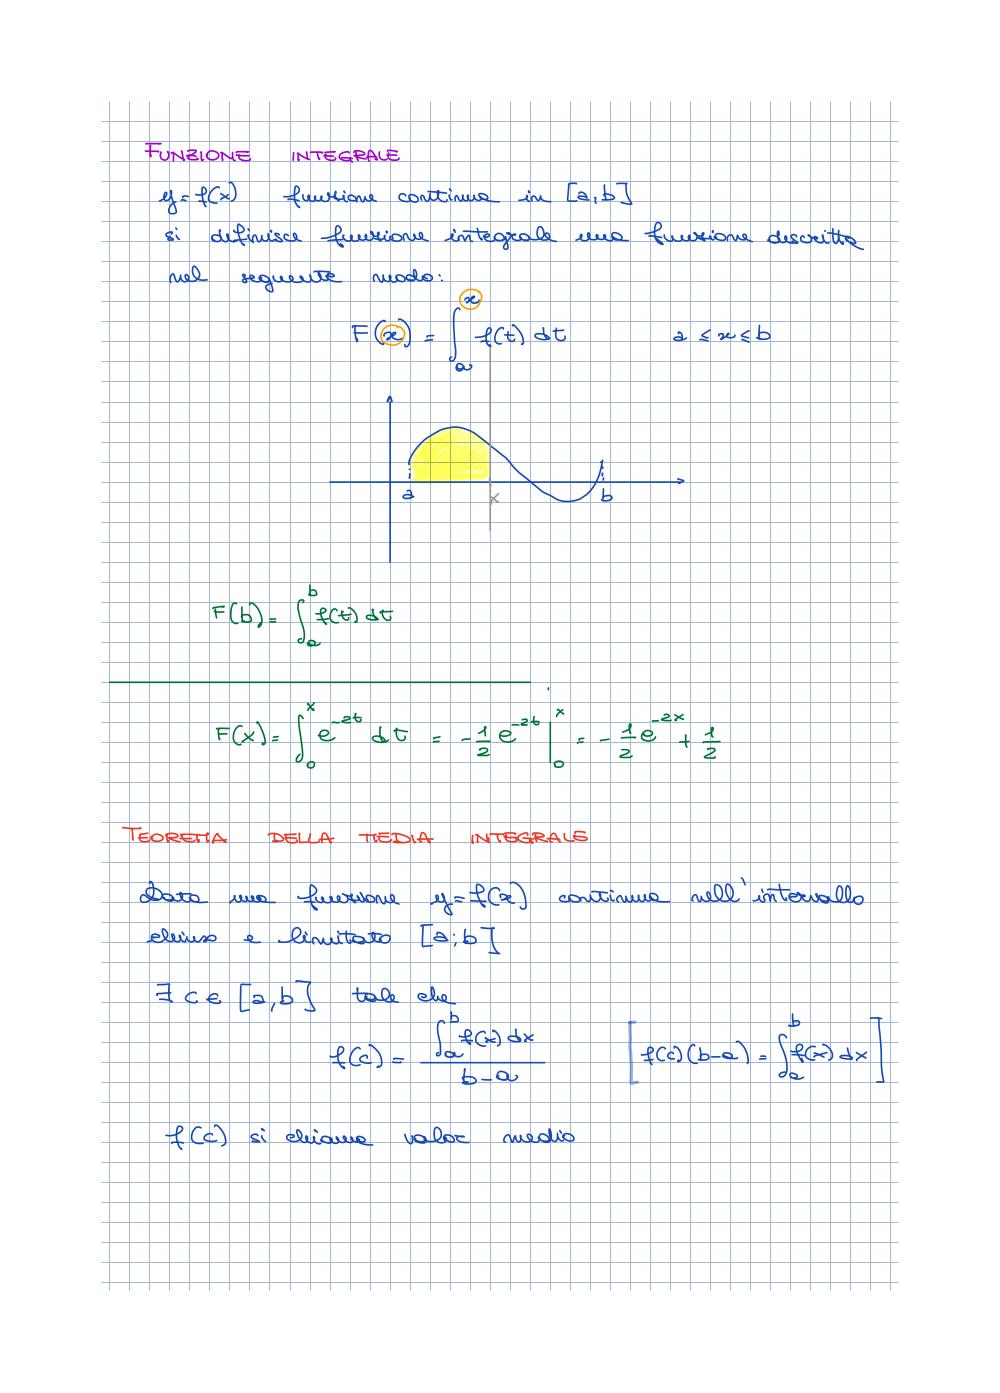 FUNZIONE INTEGRALE
y = f(x) funzione continua in [a,b]
si definisce funzione integrale una funzione descritta
nel seguente modo:
F(x) = ∫_a^x f(t) dt a ≤ x ≤ b
a x b
F(b) = ∫_a^b f(t) dt
F(x) = ∫_0^x e^{-2t} dt = -1/2 e^{-2t} |_0^x = -1/2 e^{-2x} + 1/2
TEOREMA DELLA MEDIA INTEGRALE
Data una funzione y = f(x) continua nell'intervallo
chiuso e limitato [a;b]
∃ c ∈ [a,b] tale che
f(c) = ∫_a^b f(x) dx / (b-a) [f(c)(b-a) = ∫_a^b f(x) dx]
f(c) si chiama valor medio